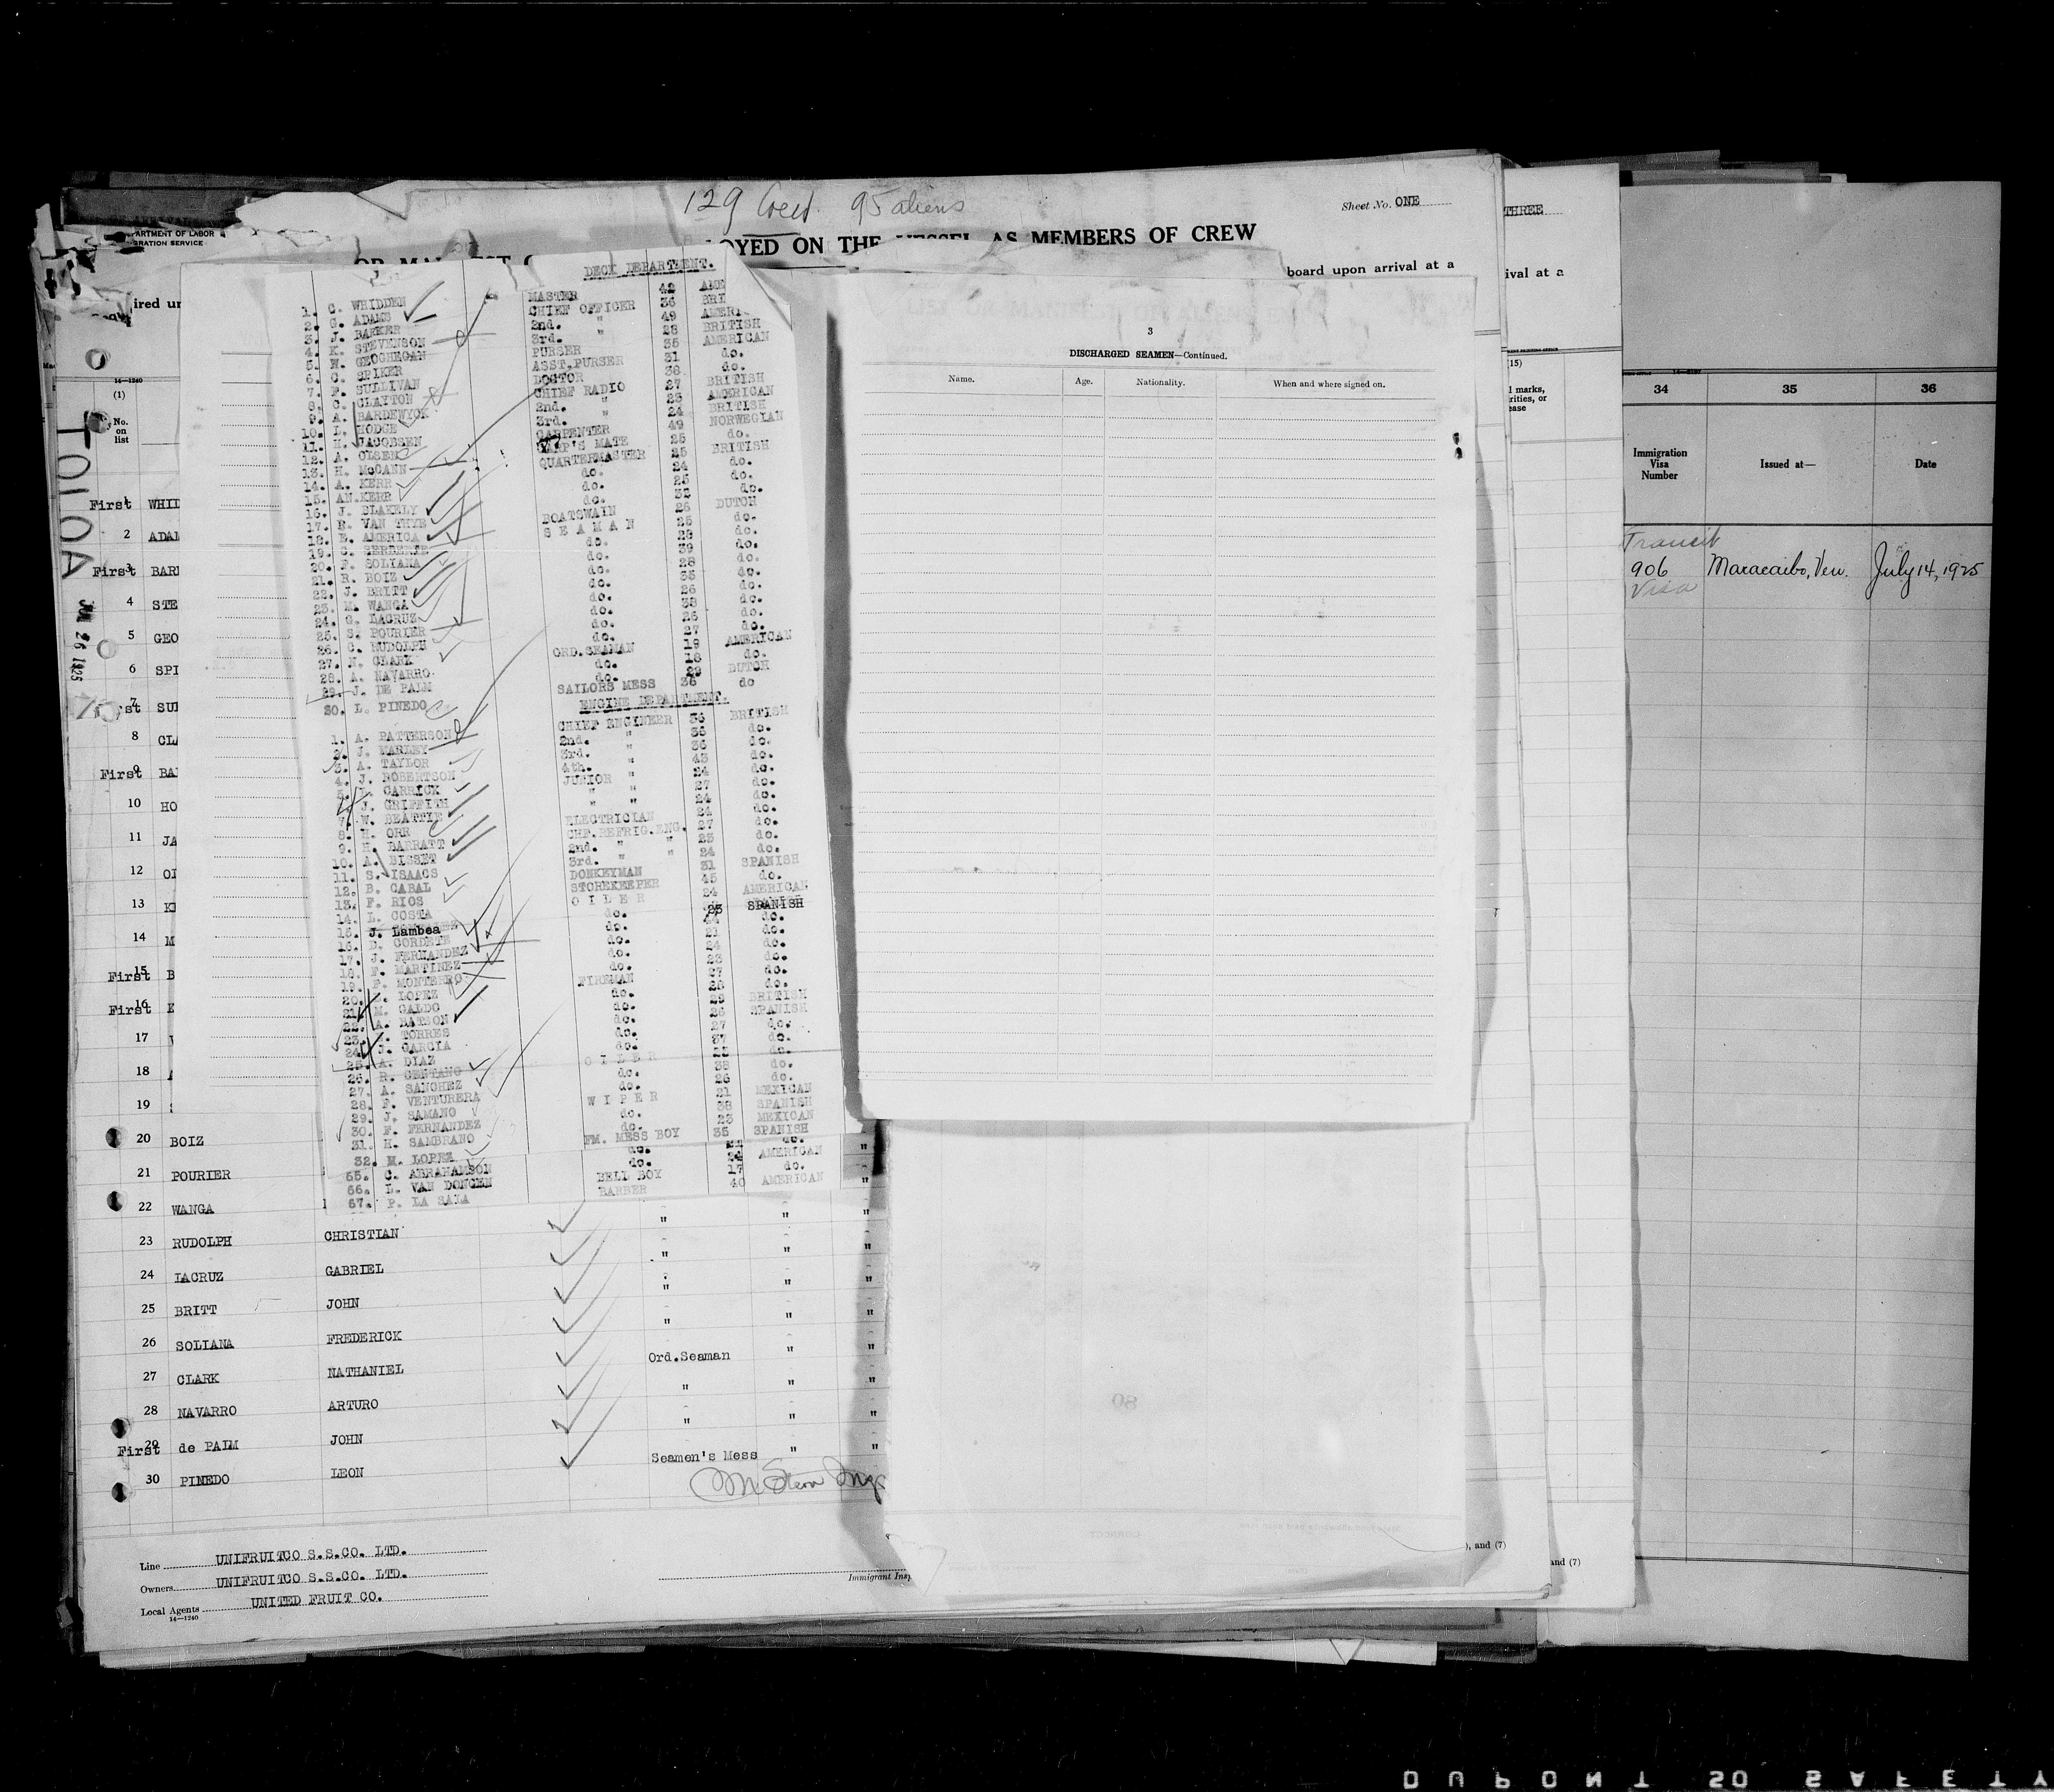 129 Crew. 95 aliens
Sheet No. ONE
THREE
PARTMENT OF LABOR
GRATION SERVICE
OYED ON THE VESSEL AS MEMBERS OF CREW
board upon arrival at a
ival at a
ired un
14—1240
(1)
No. on list
TOLOA
26 1925
DECK DEPARTMENT.
1. C. WHIDDEN MASTER 42 AME
2. G. ADAMS CHIEF OFFICER 36 BRI
3. J. BARKER 2nd. " 49 AMERIC
4. K. STEVENSON 3rd. " 28 BRITISH
5. W. GEOGHEGAN PURSER 35 AMERICAN
6. C. SPIKER ASST.PURSER 31 do.
7. F. SULLIVAN DOCTOR 38 do.
8. C. CLAYTON CHIEF RADIO 27 BRITISH
9. A. BARDEWYCK 2nd. " 23 AMERICAN
10. L. HODGE 3rd. " 24 BRITISH
11. H. JACOBSEN CARPENTER 49 NORWEGIAN
12. A. OLSEN CARP'S MATE 25 do.
13. H. McCANN QUARTERMASTER 25 BRITISH
14. A. KERR do. 24 do.
15. AN.KERR do. 25 do.
16. J. BLAKELY do. 32 do.
17. E. VAN THYB BOATSWAIN 26 DUTCH
18. E. AMERICA SEAMAN 25 do.
19. C. do. 28 do.
20. F. SOLIANA do. 39 do.
21. R. BOIZ do. 28 do.
22. J. BRITT do. 35 do.
23. M. WANGA do. 26 do.
24. G. LACRUZ do. 38 do.
25. S. POURIER do. 26 do.
26. C. RUDOLPH do. 27 do.
27. N. CLARK ORD.SEAMAN 19 AMERICAN
28. A. NAVARRO do. 18 do.
29. J. DE PALM do. 29 DUTCH
30. L. PINEDO SAILORS MESS 36 do
ENGINE DEPARTMENT.
1. A. PATTERSON CHIEF ENGINEER 36 BRITISH
2. J. MARLEY 2nd. " 35 do.
3. A. TAYLOR 3rd. " 36 do.
4. J. ROBERTSON 4th. " 43 do.
5. CARRICK JUNIOR " 24 do.
J. GRIFFITH " " 27 do.
7. W. BEATTIE " " 24 do.
8. H. ORR ELECTRICIAN 24 do.
9. H. BARRATT CHF.REFRIG.ENG. 27 do.
10. A. BISSET 2nd. " " 23 do.
11. S. ISAACS 3rd. " " 24 do.
12. B. CABAL DONKEYMAN 31 SPANISH
13. F. RIOS STOREKEEPER 45 do.
14. L. COSTA OILER 24 AMERICAN
15. J. Lambea do. 23 SPANISH
16. D. CORDETE do. do.
17. J. FERNANDEZ do. 21 do.
18. F. MARTINEZ do. 24 do.
19. F. MONTERO do. 23 do.
20. LOPEZ FIREMAN 27 do.
21. M. GALDO do. 28 do.
22. A. BATSON do. 29 BRITISH
23. TORRES do. 26 SPANISH
24. J. GARCIA do. 27 do.
25. A. DIAZ do. 37 do.
26. R. CENTANO OILER do.
27. A. SANCHEZ do. 38 do.
28. F. VENTURERA do. 26 do.
29. J. SAMANO WIPER 21 MEXICAN
30. F. FERNANDEZ do. 38 SPANISH
31. H. SAMBRANO do. 23 MEXICAN
32. M. LOPEZ FM. MESS BOY 35 SPANISH
65. C. ABRAHAMSON do. AMERICAN
66. L. VAN DONGEN BELL BOY 17 do.
67. P. LA SALA BARBER 40 AMERICAN
First 1 WHID
2 ADAM
First 3 BARK
4 STE
5 GEO
6 SPI
7 SUL
8 CLA
First 9 BA
10 HO
11 JA
12 OL
13 KE
14 M
First 15 B
First 16
17
18
19
20 BOIZ
21 POURIER
22 WANGA
23 RUDOLPH CHRISTIAN " "
24 LACRUZ GABRIEL " "
25 BRITT JOHN " "
26 SOLIANA FREDERICK " "
27 CLARK NATHANIEL Ord.Seaman " "
28 NAVARRO ARTURO " " "
First 29 de PALM JOHN " " "
30 PINEDO LEON Seamen's Mess " "
Line UNIFRUITCO S.S.CO. LTD.
Owners UNIFRUITCO S.S.CO. LTD.
Local Agents UNITED FRUIT CO.
14—1240
Immigrant Insp
3
DISCHARGED SEAMEN—Continued.
Name. Age. Nationality. When and where signed on.
), and (7)
and (7)
(15)
marks,
rities, or
ease
34 35 36
Immigration Visa Number Issued at— Date
Transit
906 Maracaibo, Ven. July 14, 1925
Visa
DUPONT SAFETY